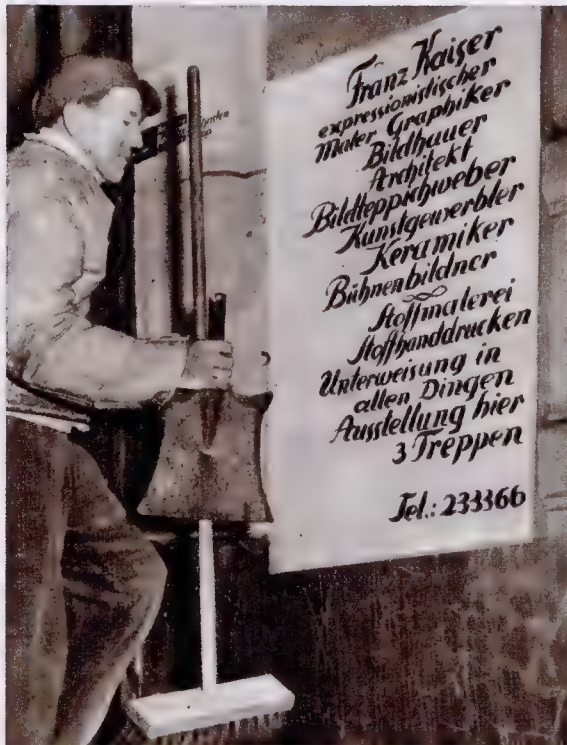 Franz Kaiser
expressionistischer
Maler Graphiker
Bildhauer
Architekt
Bildteppichweber
Kunstgewerbler
Keramiker
Bühnenbildner
Stoffmalerei
Stoffhanddrucken
Unterweisung in
allen Dingen
Ausstellung hier
3 Treppen
Tel.: 233366